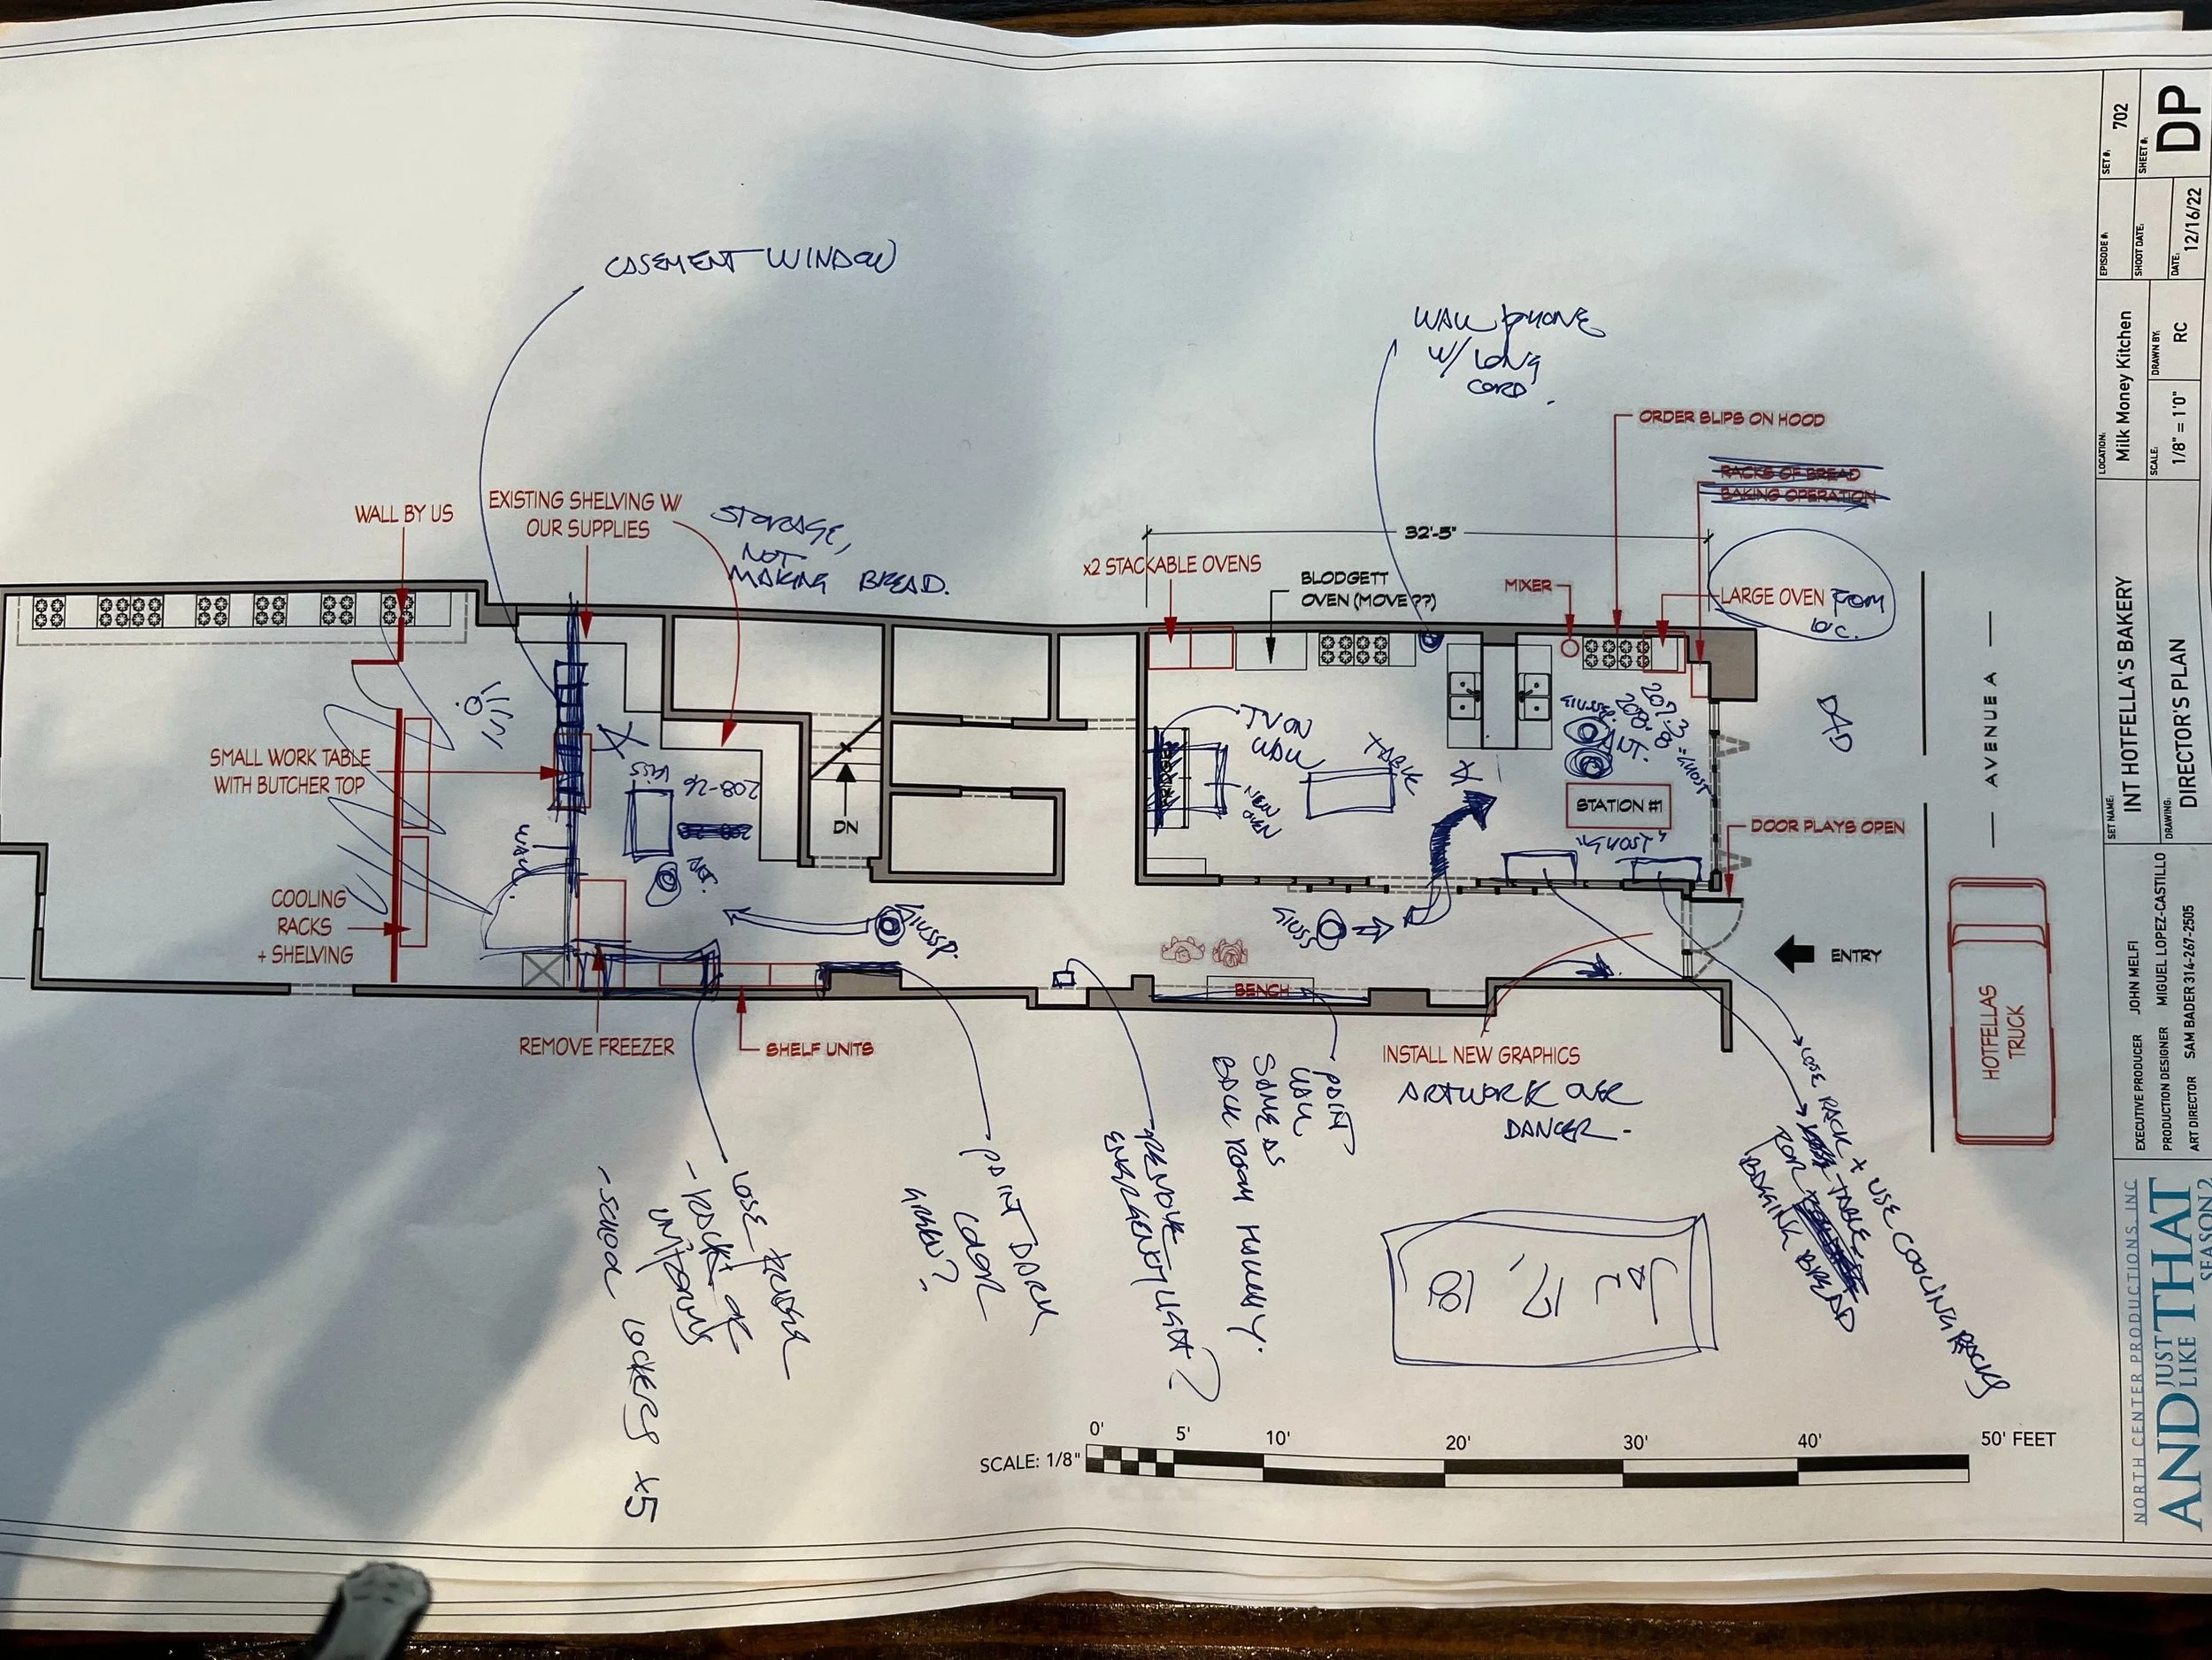 CASEMENT WINDOW
WALL PHONE
W/ LONG
CORD.
ORDER SLIPS ON HOOD
RACKS OF BREAD
BAKING OPERATION
WALL BY US
EXISTING SHELVING W/
OUR SUPPLIES
STORAGE,
NOT
MAKING BREAD.
32'-5"
x2 STACKABLE OVENS
BLODGETT
OVEN (MOVE ??)
MIXER
LARGE OVEN FROM
DAD
AVENUE A
SMALL WORK TABLE
WITH BUTCHER TOP
KISS
208-26
WALL
DN
TV ON
WALL
NEW
TABLE
X
X
GIUSSP.
207-3
208-8
ANT.
STATION #1
"GHOST"
DOOR PLAYS OPEN
COOLING
RACKS
+ SHELVING
GIUSSP.
GIUSS
ENTRY
BENCH
HOTFELLAS
TRUCK
REMOVE FREEZER
SHELF UNITS
INSTALL NEW GRAPHICS
ARTWORK OVER
DANCER -
PAINT
WALL
SAME AS
BACK ROOM HALLWAY.
REMOVE
EMERGENCY LIGHT?
PAINT DARK
COLOR
GREEN?
LOSE FREEZER
- RACK OF
UNIFORMS
- SCHOOL LOCKERS x5
LOSE RACK + USE COOLING RACKS
TABLE
FOR
BAGGING BREAD
SCALE: 1/8"
0'
5'
10'
20'
30'
40'
50' FEET
SET #:
702
SHEET #:
DP
EPISODE #:
SHOOT DATE:
DATE:
12/16/22
LOCATION:
Milk Money Kitchen
SCALE:
1/8" = 1'0"
DRAWN BY:
RC
SET NAME:
INT HOTFELLA'S BAKERY
DRAWING:
DIRECTOR'S PLAN
EXECUTIVE PRODUCER JOHN MELFI
PRODUCTION DESIGNER MIGUEL LOPEZ-CASTILLO
ART DIRECTOR SAM BADER 314-267-2505
NORTH CENTER PRODUCTIONS, INC
AND JUST LIKE THAT
SEASON 2